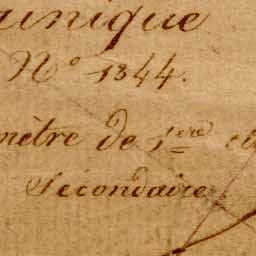 unique
N.º 1844.
mètre de 1ère cl
Secondaire.